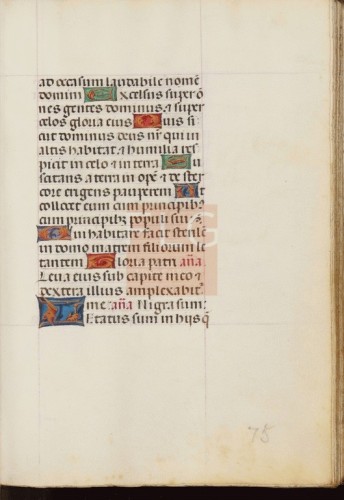 ad occasum laudabile nomē
domini Excelsus super ō
nes gentes dominus & super
celos gloria eius Quis si
cut dominus deus nr̄ qui in
altis habitat & humilia res
picit in celo & in terra Su
scitans a terra in opē & de ster
core erigens pauperem Ut
collocet eum cum principibꝰ
cum principibꝫ populi sui s
Qui habitare facit sterilē
in domo matrem filiorum le
tantem Gloria patri añа
Leua eius sub capite meo &
dextera illius amplexabit᷑
me añа Nigra sum
Letatus sum in hijs q̄
75